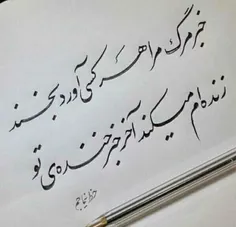 خبر مرگ مرا هر کسی آورد بخند
زنده‌ام میکند آخر خبر خنده‌ی تو